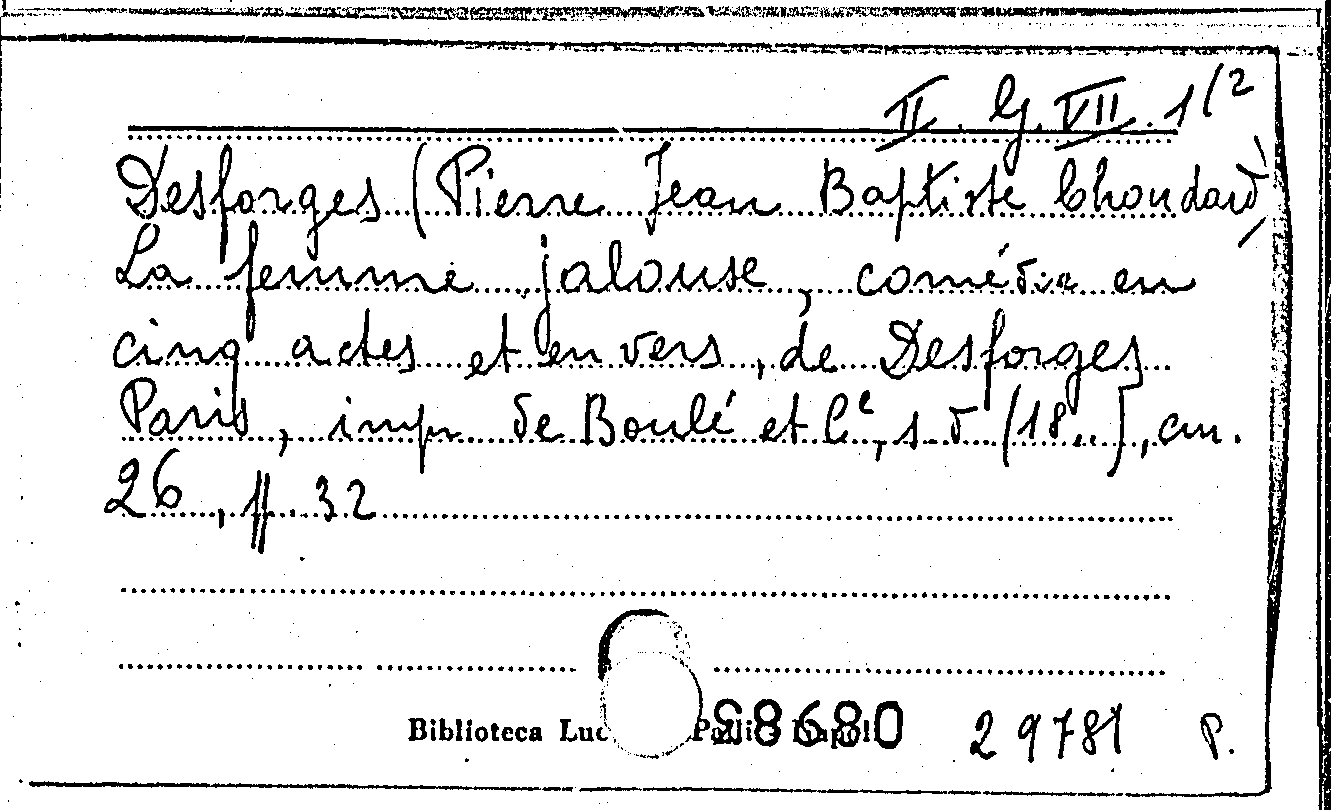 II. G. VII. 1(2
Desforges (Pierre Jean Baptiste Choudard)
La femme jalouse, comédie en
cinq actes et en vers, de Desforges
Paris, impr de Boulé et Cᵉ, s. d (18..], cm.
26, pp. 32
Biblioteca Luc
68680 29781 P.